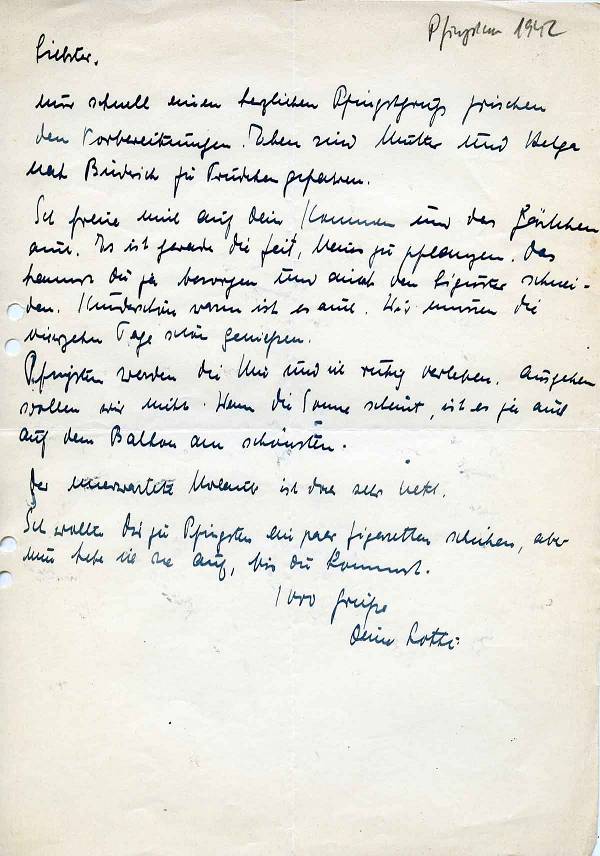 Pfingsten 1942
Liebster.
nur schnell einen herzlichen Pfingstgruß zwischen
den Vorbereitungen. Eben sind Mutter und Helga
nach Büderich zu Trudchen gefahren.
Ich freue mich auf Dein Kommen und das Gärtchen
auch. Es ist gerade die Zeit, Neues zu pflanzen. Das
kannst Du ja besorgen und auch den Liguster schnei-
den. Wunderschön warm ist es auch. Wir müssen die
vierzehn Tage schön genießen.
Pfingsten werden die Uni und ich ruhig verleben. Ausgehen
wollen wir nicht. Wenn die Sonne scheint, ist es ja auch
auf dem Balkon am schönsten.
Der unerwartete Urlaub ist doch sehr nett.
Ich wollte Dir zu Pfingsten ein paar Zigaretten schicken, aber
nun hebe ich sie auf, bis Du kommst.
1000 Grüße
Deine Lotte.